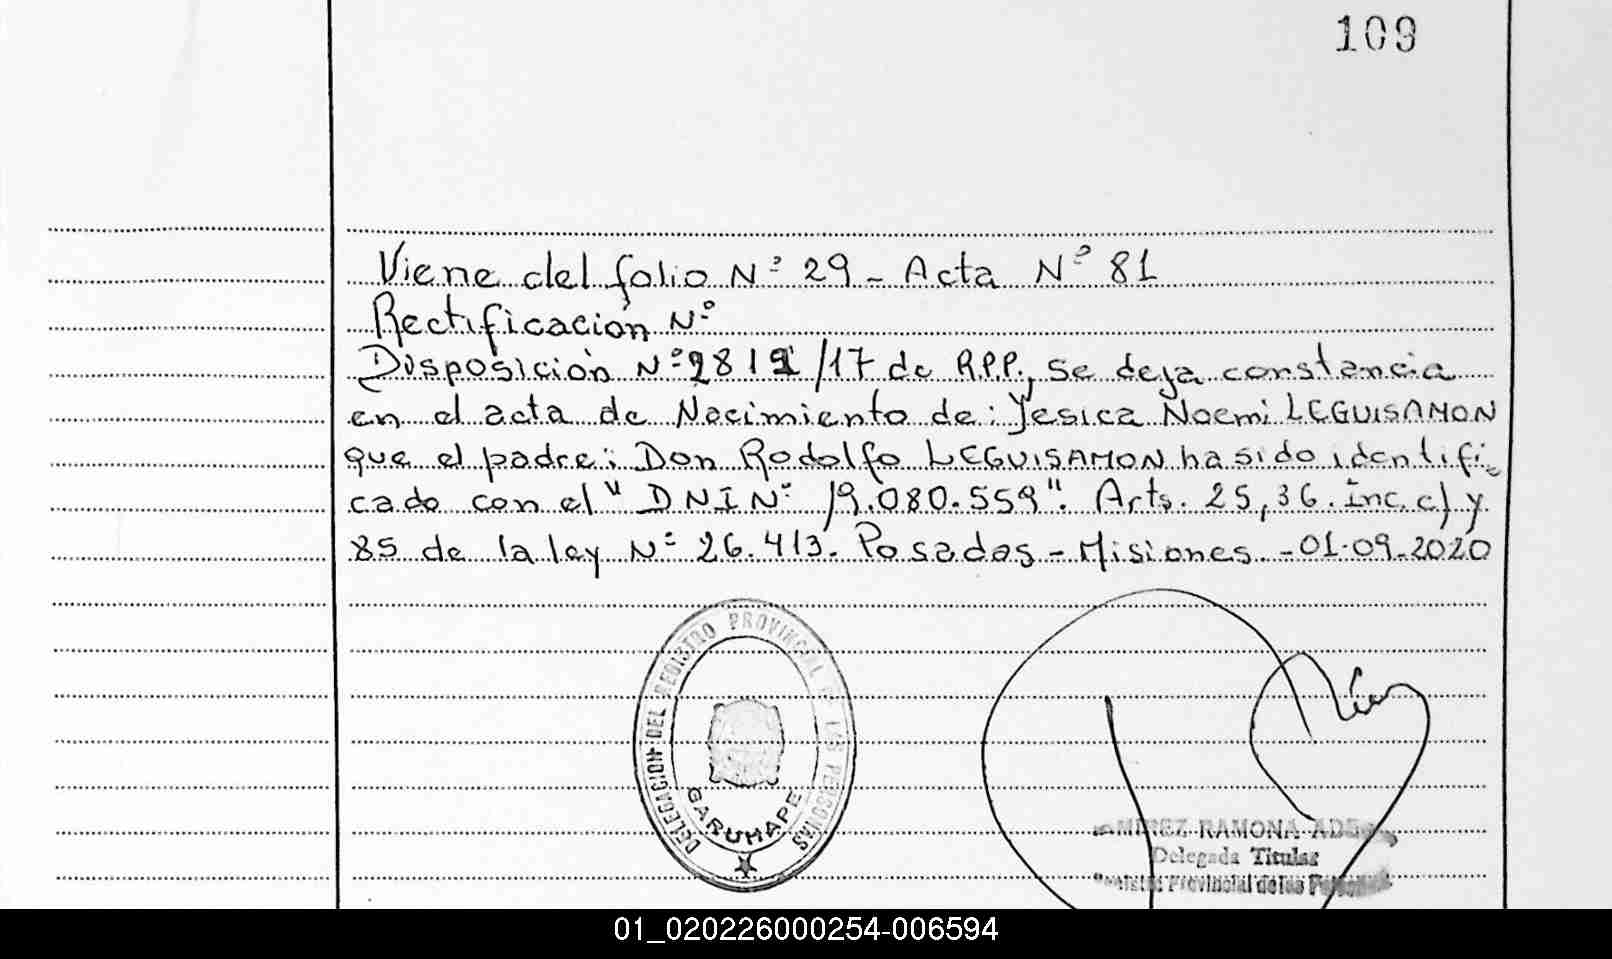 109
Viene del folio Nº 29 - Acta Nº 81
Rectificación Nº
Disposición Nº 2812/17 de R.P.P., se deja constancia
en el acta de Nacimiento de: Yesica Noemi LEGUISAMON
que el padre: Don Rodolfo LEGUISAMON ha sido identifi-
cado con el " DNI Nº 19.080.559". Arts. 25, 36. Inc. c) y
85 de la ley Nº 26.413. Posadas - Misiones - 01-09-2020
DELEGACION DEL REGISTRO PROVINCIAL DE LAS PERSONAS
GARUHAPE
RAMONA
Delegada Titular
Registro Provincial de las Personas
01_020226000254-006594